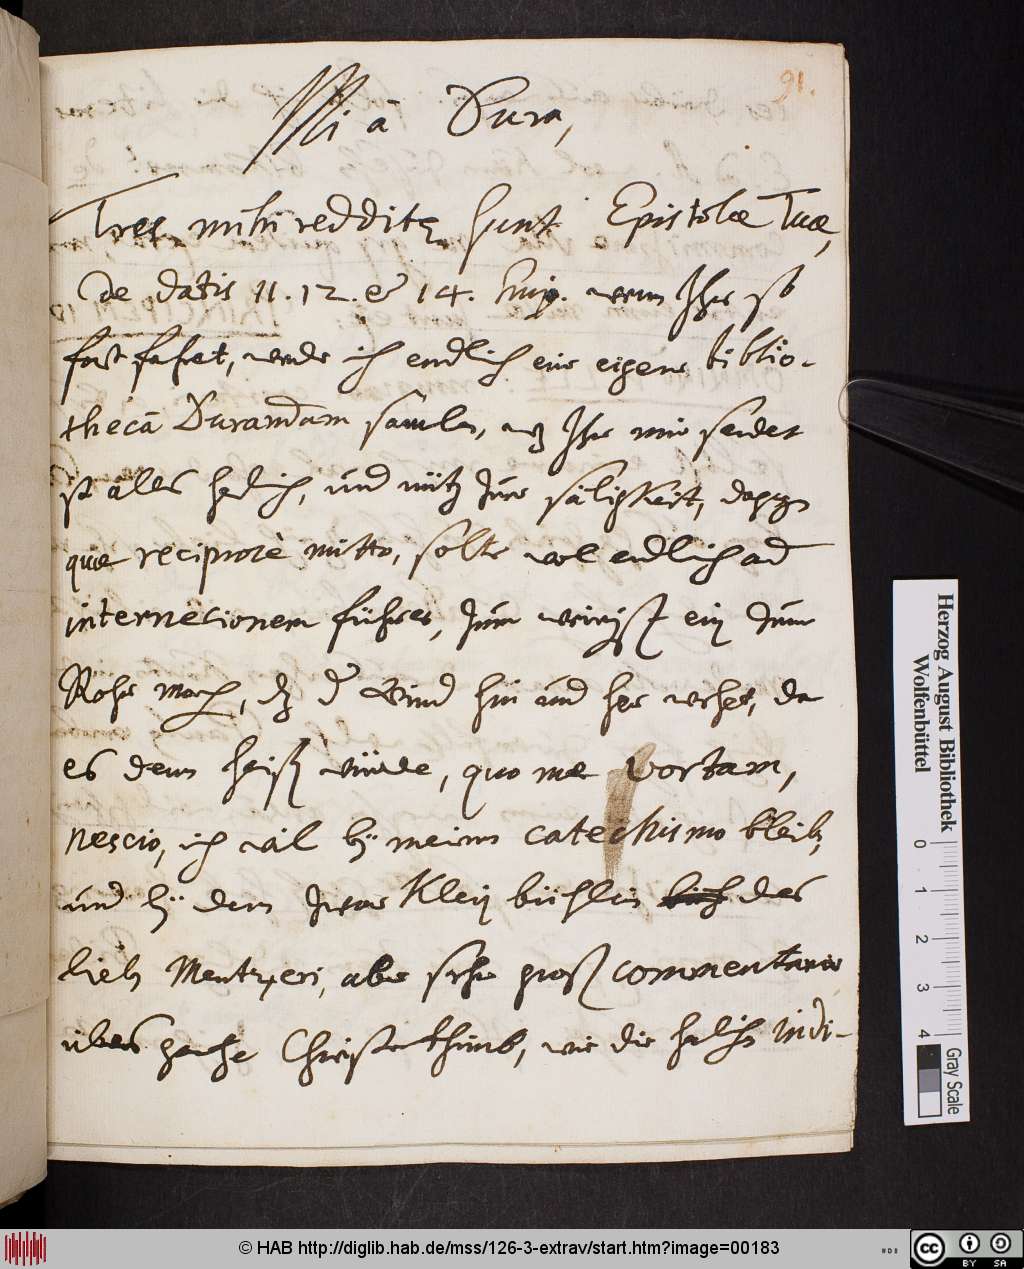 91.
Mi à Dura,
Tres mihi redditæ sunt Epistolæ Tuæ,
De datis 11. 12. & 14. hujg. wenn Ihr so
fort fahret, werde ich endlich eine eigene biblio-
thecã Durandam samlen, wz Ihr mir sendet
ist alles herlich, und nütz zur säligkeit,
quæ reciprocè mitto, solte wol endlich ad
internecionem führen, zum wenigst ein zum
Rohr mach, dz d Wind hin und her wehet, da
es denn heiß würde, quo me vortam,
nescio, ich wil bÿ meinem catechismo bleib,
und bÿ dem zwar kleÿ büchlin des
lieb Mentzeri, aber sehr groß commentario
übers ganze Christenthumb, wie die indi-
Herzog August Bibliothek
Wolfenbüttel
0 1 2 3 4
Gray Scale
© HAB http://diglib.hab.de/mss/126-3-extrav/start.htm?image=00183
cc BY SA